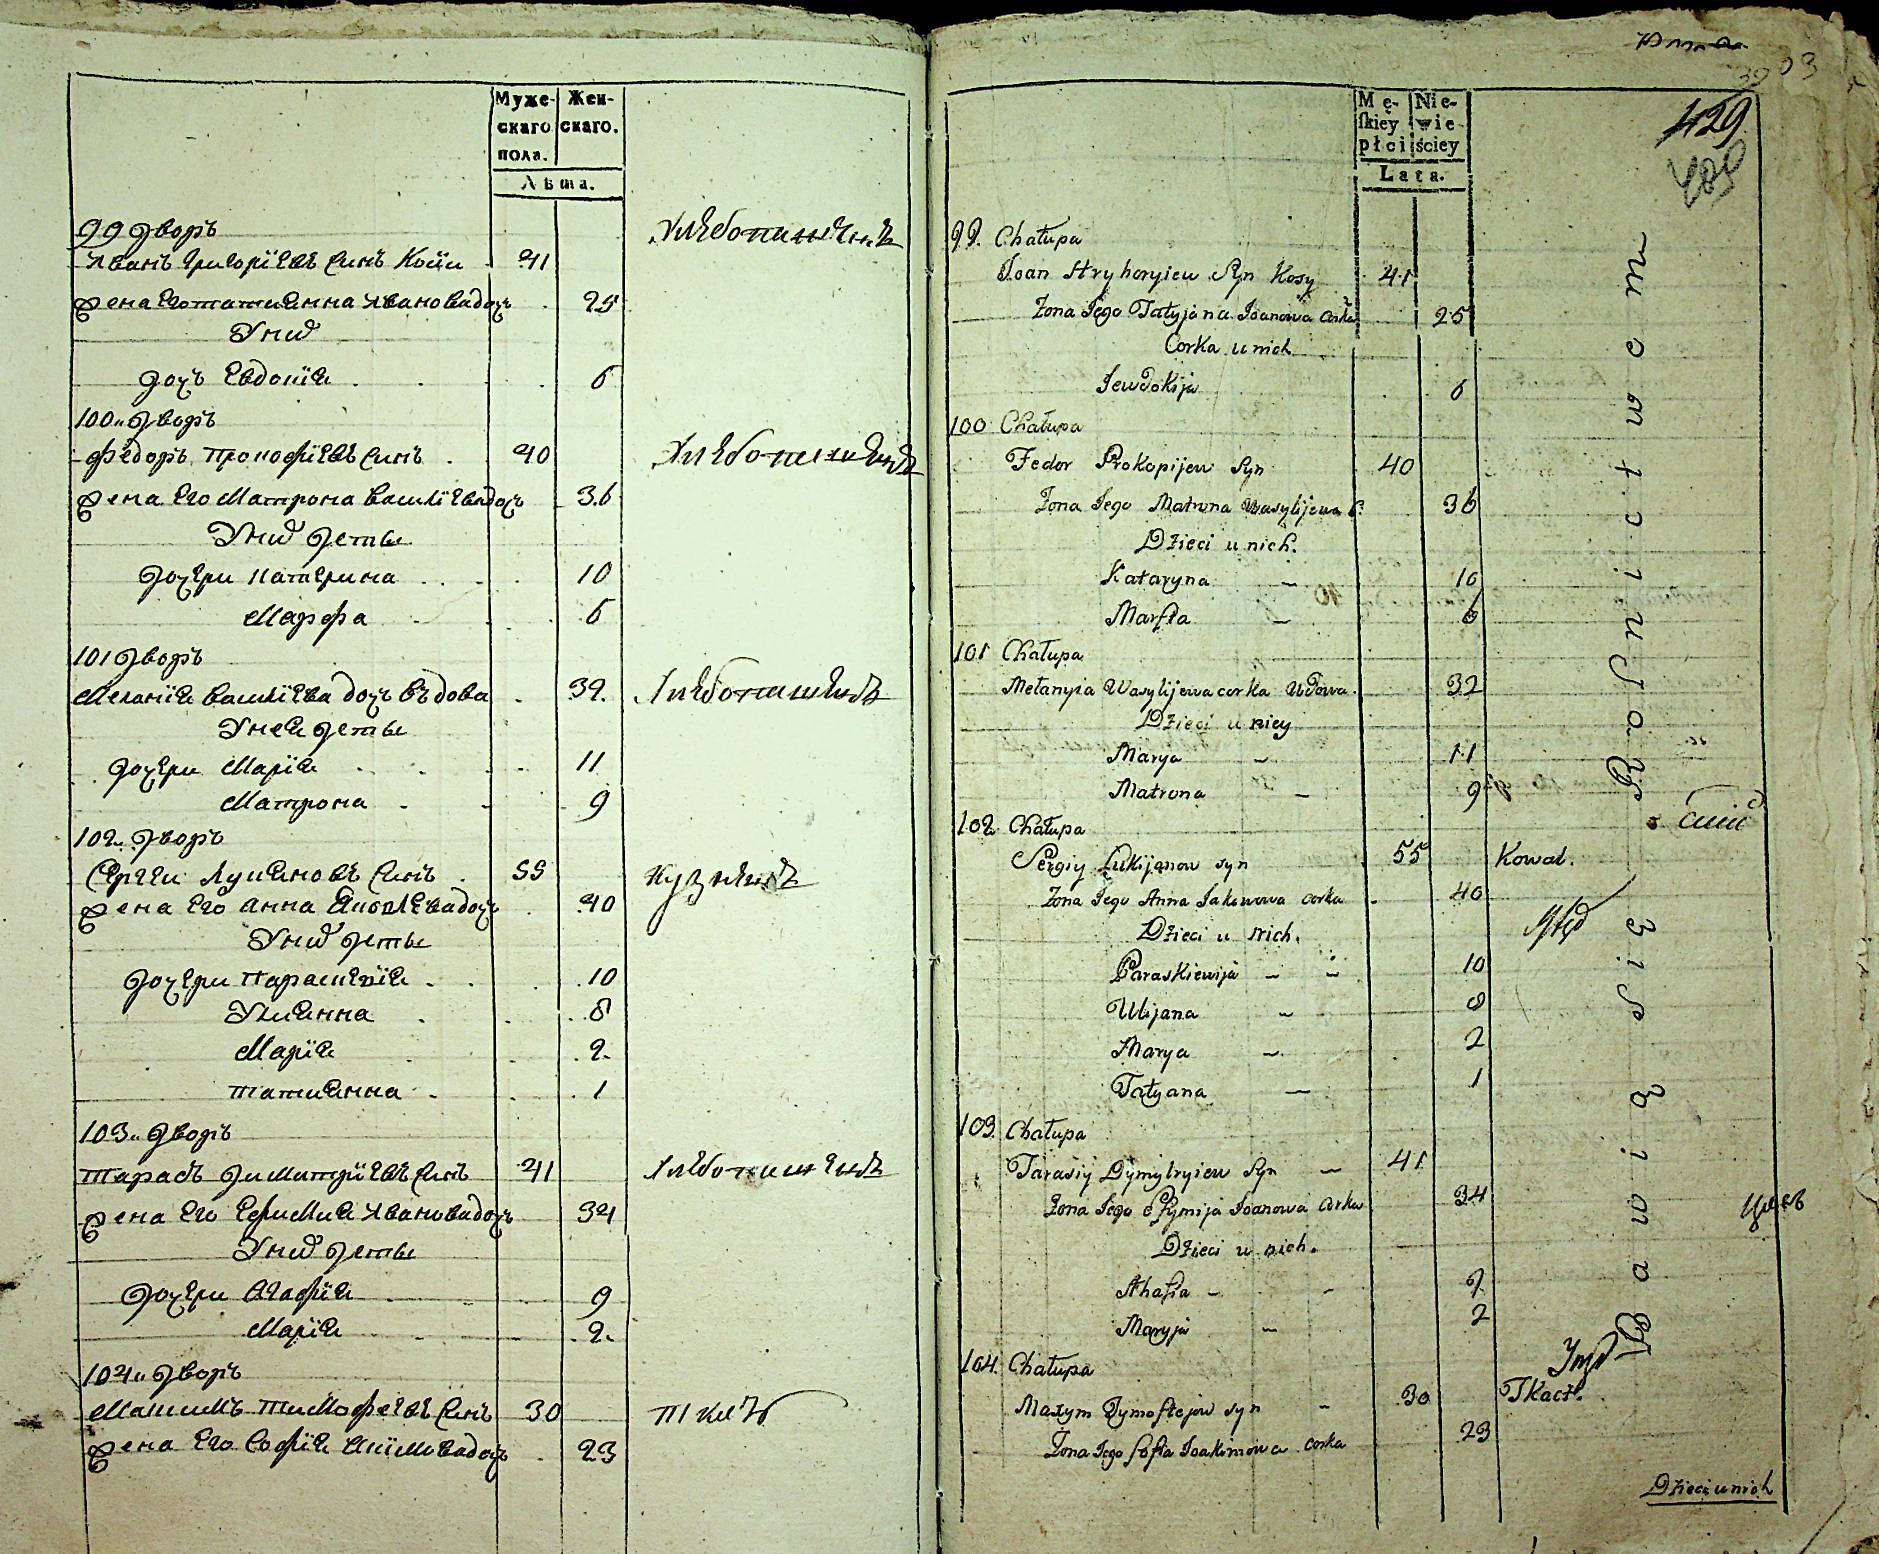 Муже-
скаго
пола.
Жен-
скаго.
Лѣта.
99 дворъ
Хлебопашецъ
Иванъ Григорїевъ синъ Косїи 41
жена Его татианна Ивановадочъ 25
Унихъ
дочъ Евдокїя 6
100 дворъ
Федоръ Прокофїевъ синъ 40
Хлебопашецъ
жена Его Матрона василїевадочъ 36
Унихъ дети
дочери Катерина 10
Марфа 6
101 дворъ
Меланїя василїева дочъ въдова 32
Хлебопашецъ
Унея дети
дочери Марїя 11
Матрона 9
102 дворъ
Сергеи Лукяновъ синъ 55
кузнецъ
жена Его анна Яковлевадочъ 40
Унихъ дети
дочери Параскевїя 10
Улиянна 8
Марїя 2
татиянна 1
103 дворъ
тарасъ димитрїевъ синъ 41
Хлебопашецъ
жена Его Ефимия Ивановадочъ 34
Унихъ дети
дочери Агафїя 9
Марїя 2
104 дворъ
Максимъ тимофеевъ синъ 30
ткачъ
жена Его Софїя Якимовадочъ 23
429
Mę-
ſkiey
płci
Nie-
wie
ściey
Lata.
99. Chałupa
Joan Hryhoryiew Syn Kosy 41
Zona Jego Tatyjana Joanowa corka 25
Corka u nich
Jewdokija 6
100 Chałupa
Fedor Prokopijew Syn 40
Zona Jego Matrona Wasylijewa C. 36
Dzieci u nich.
Kataryna 10
Marfta 6
101 Chałupa
Mełanyia Wasylijewa corka Wdowa 32
Dzieci u niey
Marya 11
Matrona 9
102 Chałupa
Sergiy Łukijanow syn 55 Kowal.
Zona Jego Anna Jakowowa corka 40
Dzieci u nich.
Paraskiewija 10
Ulijana 8
Marya 2
Tatyana 1
103. Chałupa
Tarasiy Dymytryiew Syn 41
Zona Jego Efymija Joanowa corka 34
Dzieci u nich.
Ahafia 9
Maryja 2
104. Chałupa
Maxym Tymofiejow syn 30 Tkacz.
Zona Jego Sofia Joakimowa corka 23
Dzieci u nich